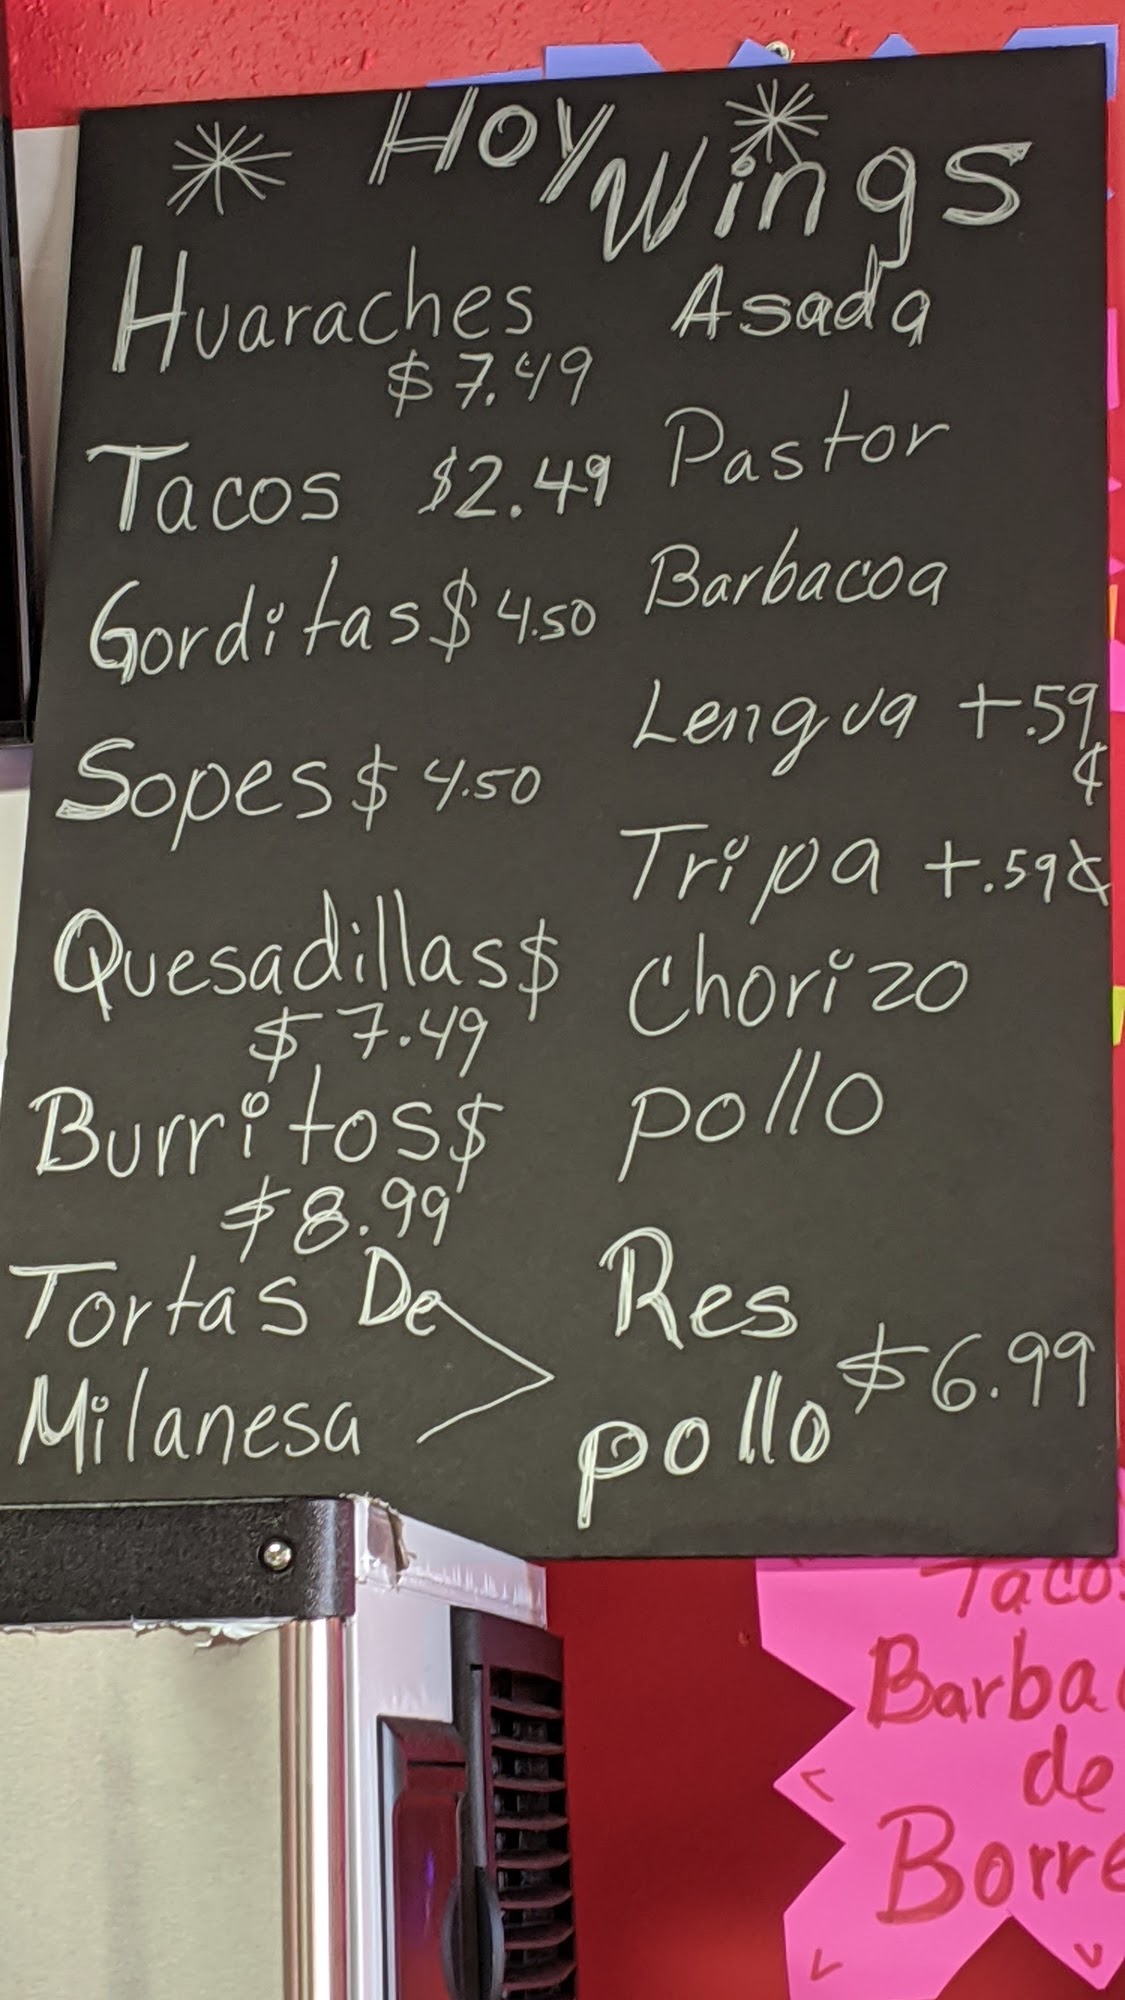 Hoy Wings
Huaraches
$7.49
Tacos $2.49
Gorditas $4.50
Sopes $4.50
Quesadillas $
$7.49
Burritos $
$8.99
Tortas De
Milanesa
Asada
Pastor
Barbacoa
Lengua +.59
¢
Tripa +.59¢
Chorizo
pollo
Res
pollo $6.99
Tacos
Barba
de
Borre